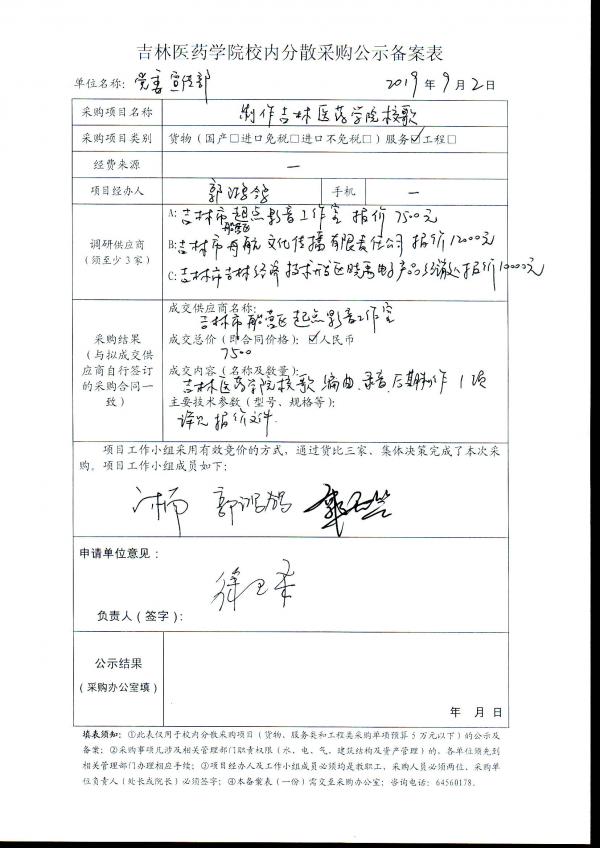 吉林医药学院校内分散采购公示备案表
单位名称：党委宣传部 2019年9月2日
采购项目名称 制作吉林医药学院校歌
采购项目类别 货物（国产□进口免税□进口不免税□）服务☑工程□
经费来源 —
项目经办人 郭鸿鹄 手机 —
调研供应商
（须至少3家）
A：吉林市船营区起点影音工作室 报价7500元
B：吉林市舟航文化传播有限责任公司 报价12000元
C：吉林市吉林经济技术开发区晓禹电子产品经销处报价10000元
采购结果
（与拟成交供
应商自行签订
的采购合同一
致）
成交供应商名称：
吉林市船营区起点影音工作室
成交总价（即合同价格）：☑人民币
7500
成交内容（名称及数量）：
吉林医药学院校歌 编曲、录音、后期制作 1项
主要技术参数（型号、规格等）：
详见报价文件.
项目工作小组采用有效竞价的方式，通过货比三家、集体决策完成了本次采
购。项目工作小组成员如下：
郭鸿鹄
申请单位意见：
负责人（签字）：
公示结果
（采购办公室填）
年 月 日
填表须知：①此表仅用于校内分散采购项目（货物、服务类和工程类采购单项预算5万元以下）的公示及
备案；②采购事项凡涉及相关管理部门职责权限（水、电、气、建筑结构及资产管理）的，各单位须先到
相关管理部门办理相应手续；③项目经办人及工作小组成员必须均是教职工，采购人员必须两位，采购单
位负责人（处长或院长）必须签字；④本备案表（一份）需交至采购办公室；咨询电话：64560178.